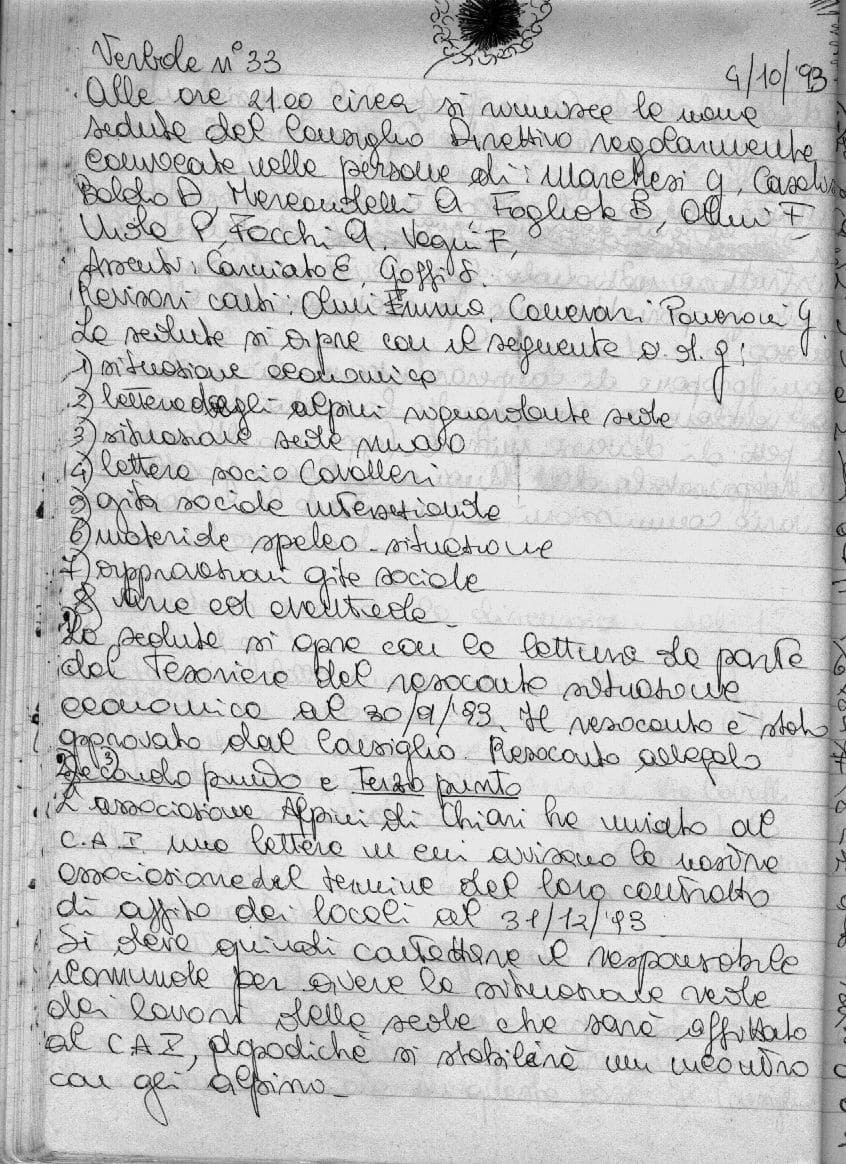 Verbale n° 33
4/10/93
Alle ore 21.00 circa si riunisce la nona
seduta del Consiglio Direttivo regolarmente
convocate nelle persone di: Marchesi G,
Baldo D, Mercandelli A, Foglia B, Olmi F,
Viola P, Focchi A, Vegini F,
Assenti: Canciato E, Goffi S.
Revisori conti: Olmi Emma, G.
La seduta si apre con il seguente o.d.g:
1) situazione economica
2) lettera degli alpini riguardante sede
3) situazione sede
4) lettera socio Cavalleri
5) gita sociale intersezionale
6) materiale speleo - situazione
7) approvazioni gite sociale
8 varie ed eventuale -
La seduta si apre con la lettura da parte
del Tesoriere del resoconto situazione
economica al 30/9/93. Il resoconto è stato
approvato dal Consiglio. Resoconto allegato
2) Secondo punto e Terzo punto
L'associazione Alpini di Chiari ha inviato al
C.A.I. una lettera in cui avisano la nostra
associazione del termine del loro contratto
di affito dei locali al 31/12/93
Si deve quindi contattare il responsabile
comunale per avere la situazione reale
dei lavori della sede che sarà affittato
al CAI, dopodichè si stabilirà un incontro
con gli alpino -